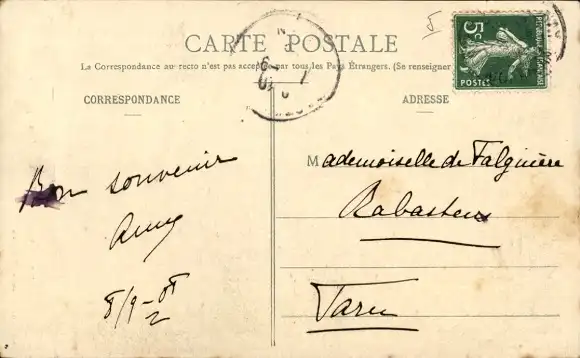 CARTE POSTALE
La Correspondance au recto n'est pas acceptée par tous les Pays Étrangers. (Se renseigner
CORRESPONDANCE
ADRESSE
5c
POSTES
RÉPUBLIQUE FRANÇAISE
Bon souvenir
8/9-08
Mademoiselle de Falguière
Rabastens
Tarn